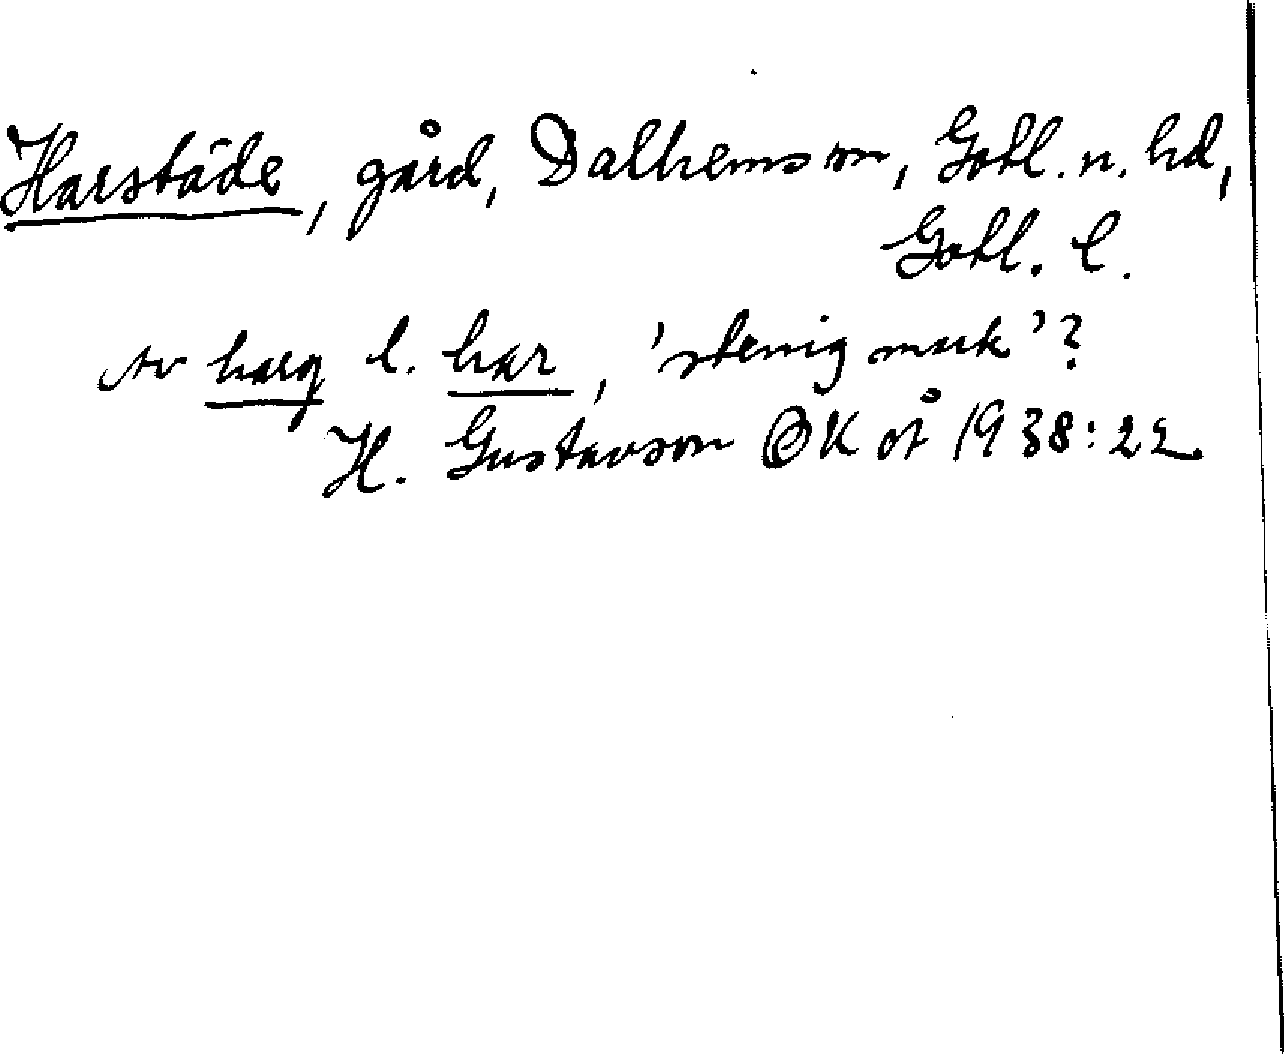 Harstäde, gård, Dalhems sn, Gotl. n. hd,
Gotl. l.
Av harg l. har, 'stenig mark'?
H. Gustavson GK på 1938:22